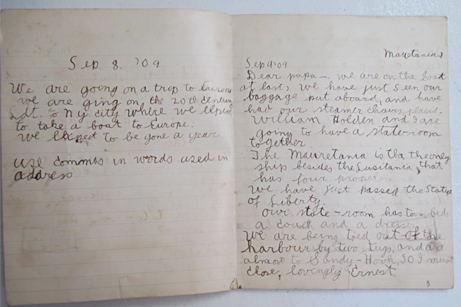 Sep 8, '09
We are going on a trip to Europe
we are going on the 20th century
Ldt. to N.y. city where we expect
to take a boat to Europe.
we expect to be gone a year
use commas in words used in
address
Mauretania
Sep 9 '09
Dear papa - we are on the boat
at last, we have just seen our
baggage put aboard, and have
had our steamer chairs placed.
William Holden and I are
going to have a state-room
together
The Mauretania is the only
ship besides the Lusitania, that
has four
We have just passed the Statue
of Liberty.
our state-room has two beds
a couch and a dresser
We are being towed out of the
harbour by two tugs, and are
almost to Sandy-Hook, SO I must
close, lovingly Ernest